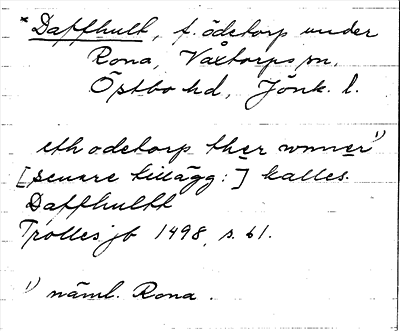 * Daffhult, f. ödetorp under
Rona, Våxtorps sn,
Östbo hd, Jönk. l.
eth odetorp ther wnner 1)
[senare tillägg:] kalles
Daffhultt
Trolles jb 1498, s. 61.
1) näml. Rona.